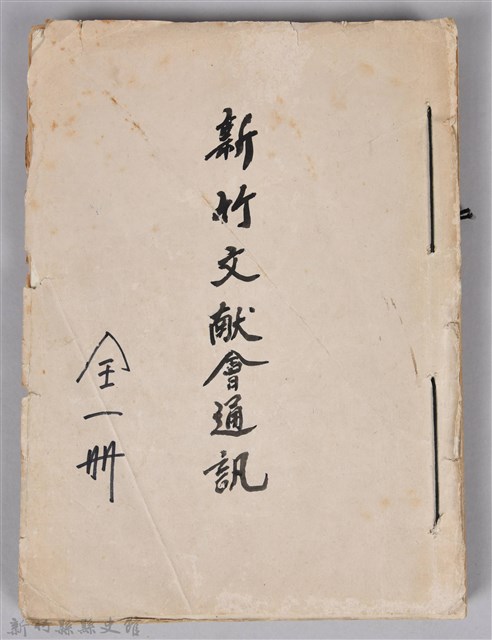 新竹文献會通訊
全一冊
新竹縣縣史館